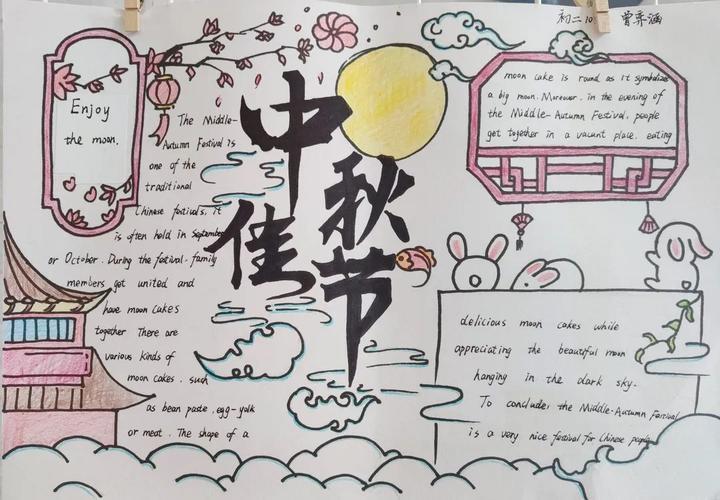 初二10 曾弈涵
中秋佳节
Enjoy
the moon.
The Middle-
Autumn Festival is
one of the
traditional
Chinese festivals, it
is often held in September
or October. During the festival, family
members get united and
have moon cakes
together There are
various kinds of
moon cakes, such
as bean paste, egg-yolk
or meat. The shape of a
moon cake is round as it symbolizes
a big moon. Moreover, in the evening of
the Middle-Autumn Festival, people
get together in a vacant place, eating
delicious moon cakes while
appreciating the beautiful moon
hanging in the dark sky.
To conclude, the Middle-Autumn Festival
is a very nice festival for Chinese people.